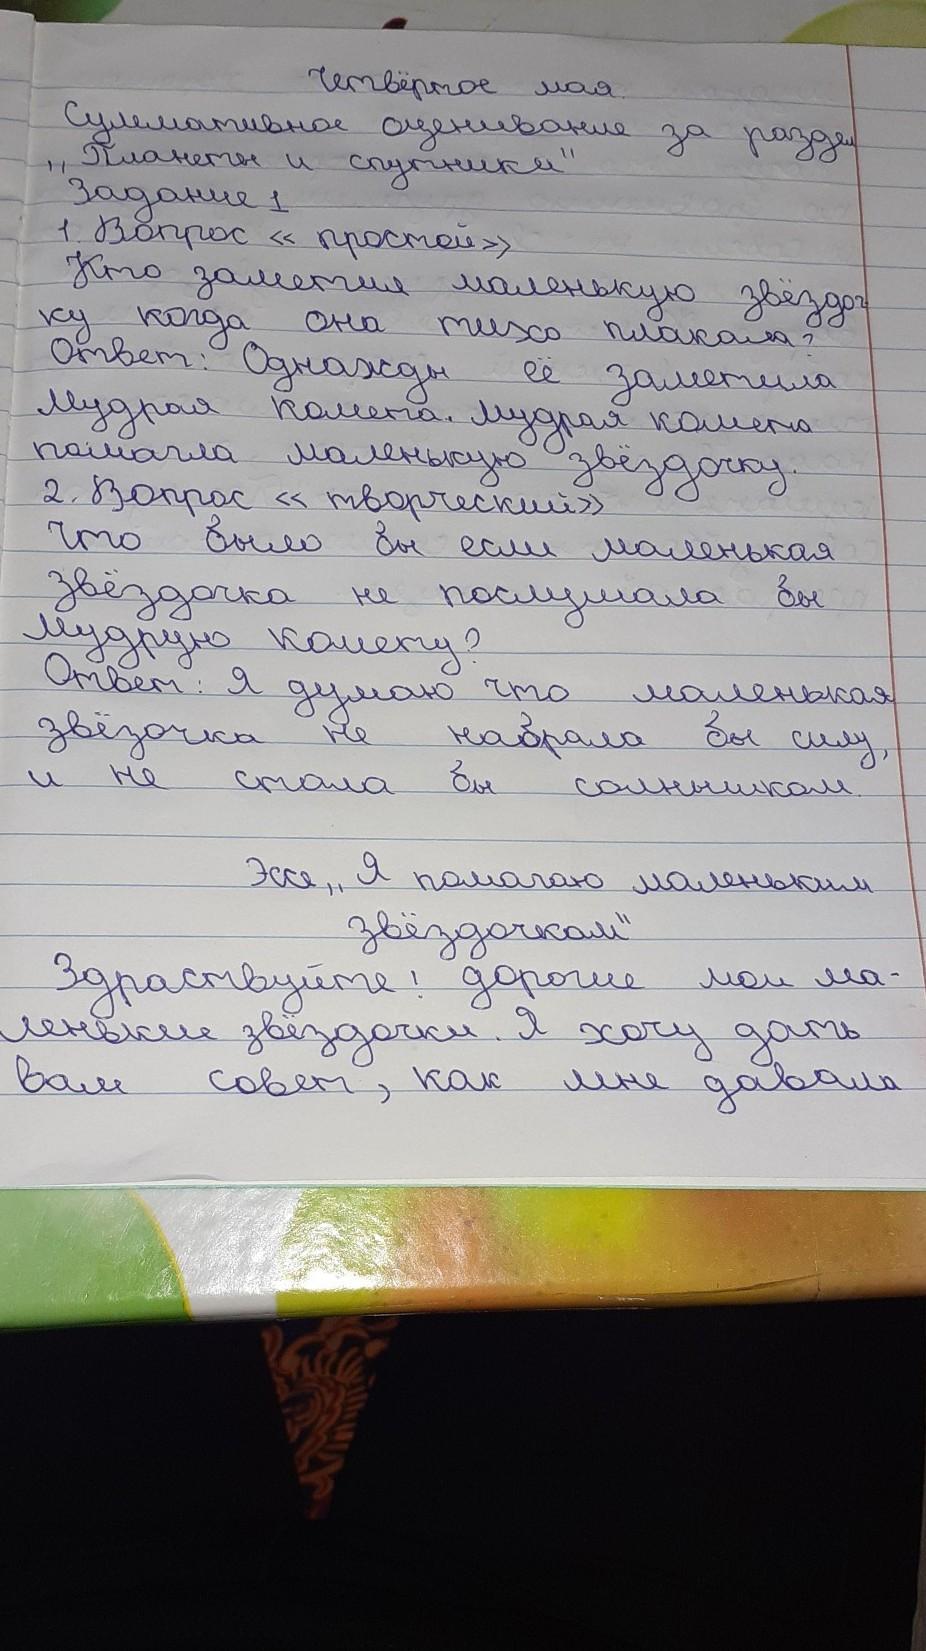 Четвёртое мая.
Суммативное оценивание за раздел
„Планеты и спутники"
Задание 1
1. Вопрос «простой»
Кто заметил маленькую звёздоч
ку когда она тихо плакала?
Ответ: Однажды её заметила
Мудрая комета. Мудрая комета
памагла маленькую звёздочку.
2. Вопрос «творческий»
Что было бы если маленькая
звёздочка не послушала бы
Мудрую комету?
Ответ: Я думаю что маленькая
звёзочка не набрала бы силу,
и не стала бы солнышком.
Эссе „Я помагаю маленьким
звёздочкам"
Здраствуйте! дорогие мои ма-
ленькие звёздочки. Я хочу дать
вам совет, как мне давала